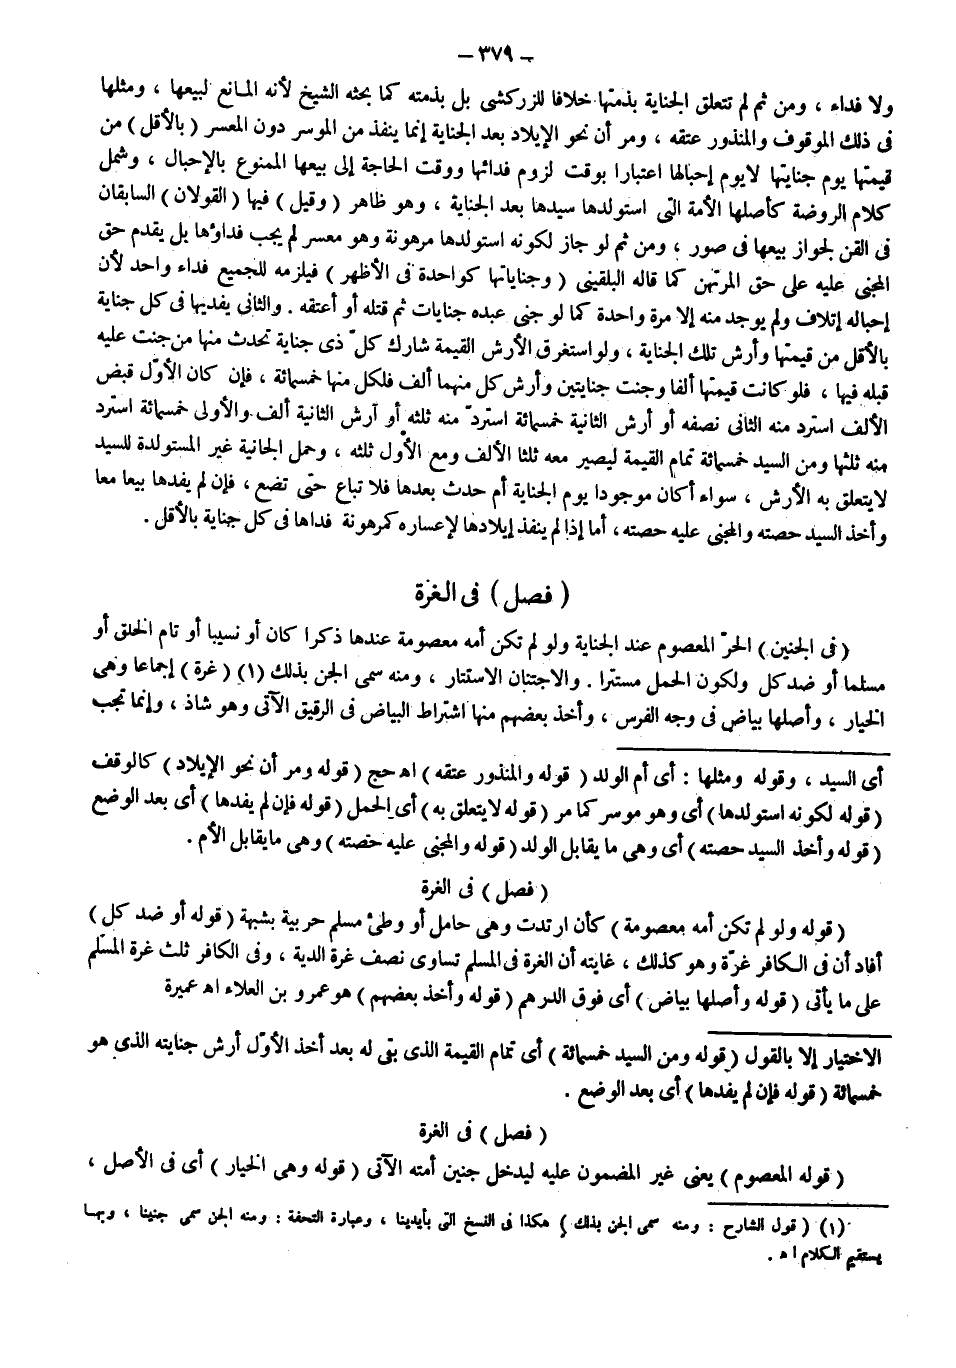 – ٣٧٩ –
ولا فداء ، ومن ثم لم تتعلق الجناية بذمتها خلافا للزركشى بل بذمته كما بحثه الشيخ لأنه المانع لبيعها ، ومثلها
فى ذلك الموقوف والمنذور عتقه ، ومر أن نحو الإيلاد بعد الجناية إنما ينفذ من الموسر دون المعسر ( بالأقل ) من
قيمتها يوم جنايتها لا يوم إحبالها اعتبارا بوقت لزوم فدائها ووقت الحاجة إلى بيعها الممنوع بالإحبال ، وشمل
كلام الروضة كأصلها الأمة التى استولدها سيدها بعد الجناية ، وهو ظاهر ( وقيل ) فيها ( القولان ) السابقان
فى القن لجواز بيعها فى صور ، ومن ثم لو جاز لكونه استولدها مرهونة وهو معسر لم يجب فداؤها بل يقدم حق
المجنى عليه على حق المرتهن كما قاله البلقينى ( وجناياتها كواحدة فى الأظهر ) فيلزمه للجميع فداء واحد لأن
إحباله إتلاف ولم يوجد منه إلا مرة واحدة كما لو جنى عبده جنايات ثم قتله أو أعتقه . والثانى يفديها فى كل جناية
بالأقل من قيمتها وأرش تلك الجناية ، ولو استغرق الأرش القيمة شارك كلّ ذى جناية تحدث منها من جنت عليه
قبله فيها ، فلو كانت قيمتها ألفا وجنت جنايتين وأرش كل منهما ألف فلكل منها خمسمائة ، فإن كان الأوّل قبض
الألف استرد منه الثانى نصفه أو أرش الثانية خمسمائة استردّ منه ثلثه أو أرش الثانية ألف والأولى خمسمائة استرد
منه ثلثها ومن السيد خمسمائة تمام القيمة ليصير معه ثلثا الألف ومع الأوّل ثلثه ، وحمل الجانية غير المستولدة للسيد
لا يتعلق به الأرش ، سواء أكان موجودا يوم الجناية أم حدث بعدها فلا تباع حتى تضع ، فإن لم يفدها بيعا معا
وأخذ السيد حصته والمجنى عليه حصته ، أما إذا لم ينفذ إيلادها لإعساره كمرهونة فداها فى كل جناية بالأقل .
( فصل ) فى الغرة
( فى الجنين ) الحرّ المعصوم عند الجناية ولو لم تكن أمه معصومة عندها ذكرا كان أو نسيبا أو تام الخلق أو
مسلما أو ضد كل ولكون الحمل مستترا . والاجتنان الاستتار ، ومنه سمى الجن بذلك (١) ( غرة ) إجماعا وهى
الخيار ، وأصلها بياض فى وجه الفرس ، وأخذ بعضهم منها اشتراط البياض فى الرقيق الآتى وهو شاذ ، وإنما تجب
أى السيد ، وقوله ومثلها : أى أم الولد ( قوله والمنذور عتقه ) اه حج ( قوله ومر أن نحو الإيلاد ) كالوقف
( قوله لكونه استولدها ) أى وهو موسر كما مر ( قوله لا يتعلق به ) أى الحمل ( قوله فإن لم يفدها ) أى بعد الوضع
( قوله وأخذ السيد حصته ) أى وهى ما يقابل الولد ( قوله والمجنى عليه حصته ) وهى ما يقابل الأم .
( فصل ) فى الغرة
( قوله ولو لم تكن أمه معصومة ) كأن ارتدت وهى حامل أو وطئ مسلم حربية بشبهة ( قوله أو ضد كل )
أفاد أن فى الكافر غرّة وهو كذلك ، غايته أن الغرة فى المسلم تساوى نصف غرة الدية ، وفى الكافر ثلث غرة المسلم
على ما يأتى ( قوله وأصلها بياض ) أى فوق الدرهم ( قوله وأخذ بعضهم ) هو عمرو بن العلاء اه عميرة
الاختيار إلا بالقول ( قوله ومن السيد خمسمائة ) أى تمام القيمة الذى بقى له بعد أخذ الأوّل أرش جنايته الذى هو
خمسمائة ( قوله فإن لم يفدها ) أى بعد الوضع .
( فصل ) فى الغرة
( قوله المعصوم ) يعنى غير المضمون عليه ليدخل جنين أمته الآتى ( قوله وهى الخيار ) أى فى الأصل ،
(١) ( قول الشارح : ومنه سمى الجن بذلك ) هكذا فى النسخ التى بأيدينا ، وعبارة التحفة : ومنه الجن سمى جنينا ، وبها
يستقيم الكلام اه .